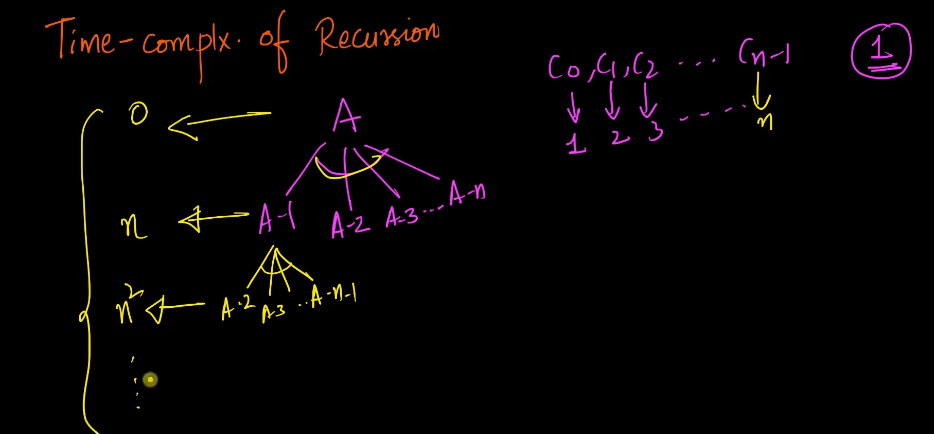 Time-complx. of Recurssion
C0, C1, C2 ... Cn-1
1
1 2 3 ..... n
0 A
n A-1 A-2 A-3 ... A-n
n² A-2 A-3 .. A-n-1